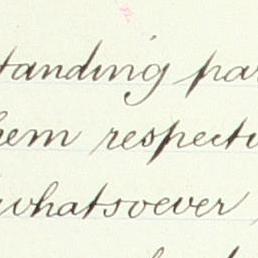 tanding par
hem respecti
whatsoever